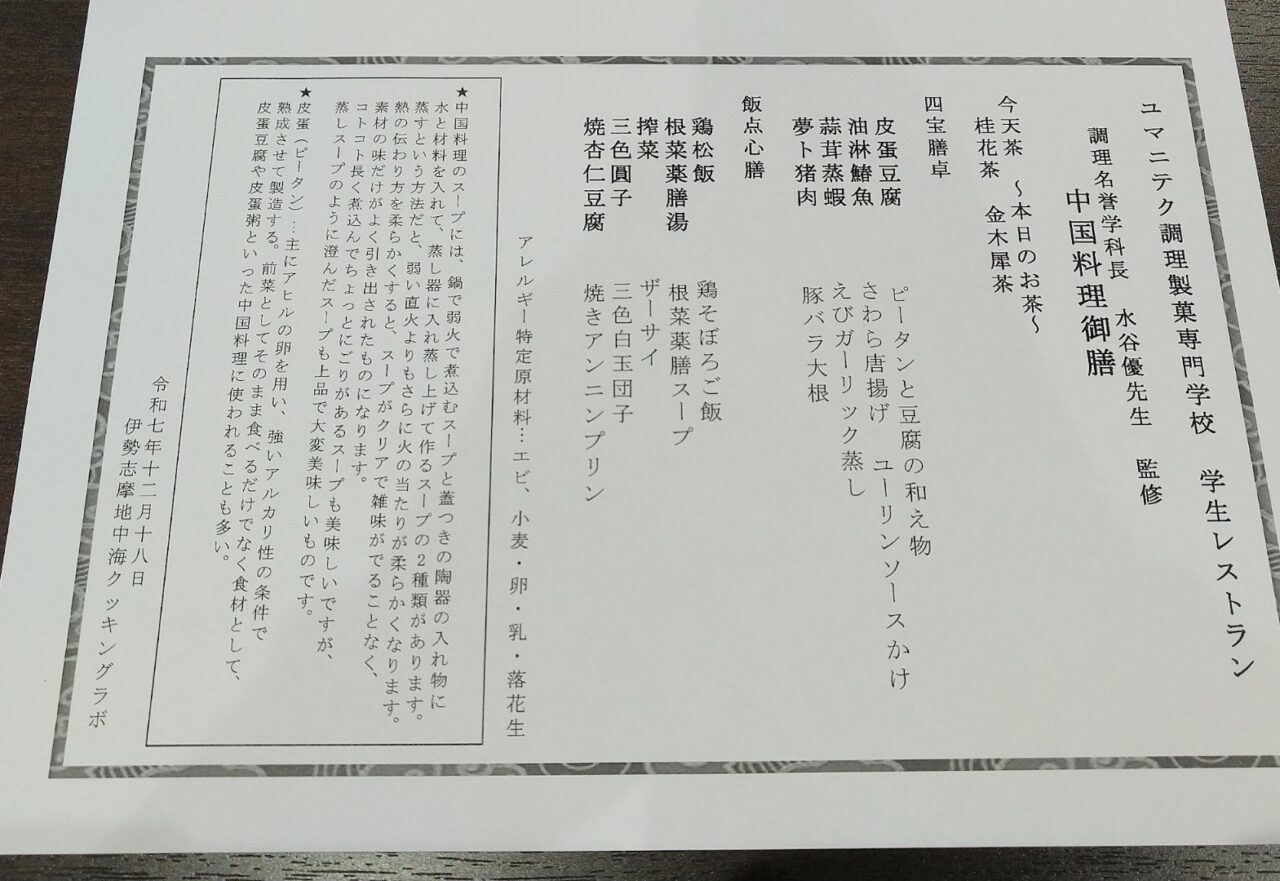 ユマニテク調理製菓専門学校　学生レストラン
調理名誉学科長　水谷優先生　監修
中国料理御膳
今天茶　～本日のお茶～
桂花茶　金木犀茶
四宝膳卓
皮蛋豆腐　ピータンと豆腐の和え物
油淋鰆魚　さわら唐揚げ　ユーリンソースかけ
蒜茸蒸蝦　えびガーリック蒸し
夢卜猪肉　豚バラ大根
飯点心膳
鶏松飯　鶏そぼろご飯
根菜薬膳湯　根菜薬膳スープ
搾菜　ザーサイ
三色圓子　三色白玉団子
焼杏仁豆腐　焼きアンニンプリン
アレルギー特定原材料…エビ、小麦・卵・乳・落花生
★中国料理のスープには、鍋で弱火で煮込むスープと蓋つきの陶器の入れ物に
水と材料を入れて、蒸し器に入れ蒸し上げて作るスープの２種類があります。
蒸すという方法だと、弱い直火よりもさらに火の当たりが柔らかくなります。
熱の伝わり方を柔らかくすると、スープがクリアで雑味がでることなく、
素材の味だけがよく引き出されたものになります。
コトコト長く煮込んでちょっとにごりがあるスープも美味しいですが、
蒸しスープのように澄んだスープも上品で大変美味しいものです。
★皮蛋（ピータン）…主にアヒルの卵を用い、強いアルカリ性の条件で
熟成させて製造する。前菜としてそのまま食べるだけでなく食材として、
皮蛋豆腐や皮蛋粥といった中国料理に使われることも多い。
令和七年十二月十八日
伊勢志摩地中海クッキングラボ